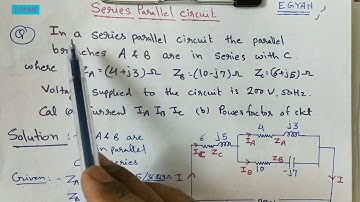 EGYAN
Series Parallel circuit
EGYAN
Q In a series parallel circuit the parallel
branches A & B are in series with C.
where Z_A = (4+j3)-Ω Z_B = (10-j7)-Ω Z_C = (6+j5)-Ω
Voltage supplied to the circuit is 200V, 50Hz.
Cal current I_A I_B I_C (b) Power factor of ckt
Solution :- A & B are
in parallel
C series
Given:- Z_A
6 j5
I_C Z_C
4 j3
I_A Z_A
I_B Z_B
10 -j7
I I